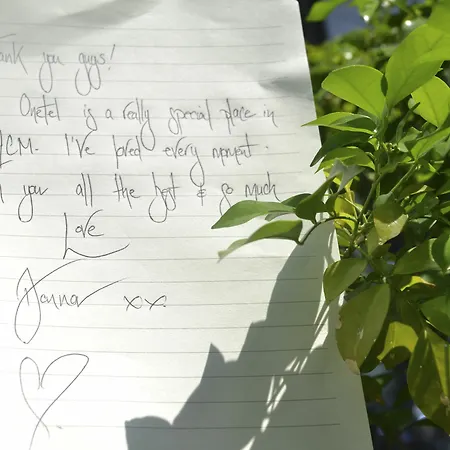 Thank you guys!
Onetel is a really special place in
HCM. I've loved every moment.
you all the best & so much
Love
Hanna xx